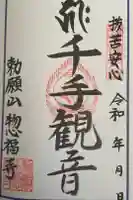 抜苦安心
令和 年 月
千手観音
勅願山 惣福寺